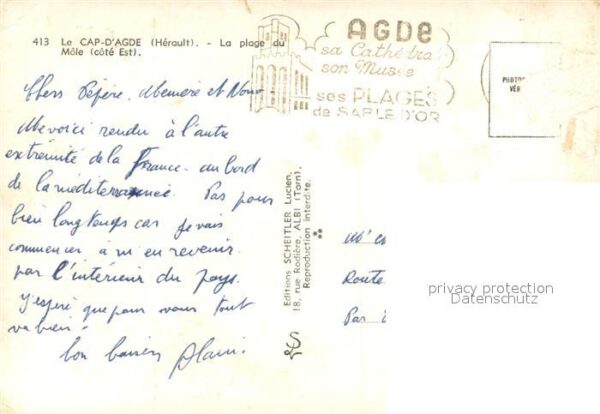 413 Le CAP-D'AGDE (Hérault). - La plage du
Môle (côté Est).
AGDE
sa Cathédra
son Musée
ses PLAGES
de SABLE D'OR
PHOTO
VER
Chers Pépère, Mémère et Nono
Me voici rendu à l'autre
extrémité de la France au bord
de la méditerranée. Pas pour
bien longtemps car je vais
commencer à m'en revenir
par l'intérieur du pays.
J'espère que pour vous tout
va bien!
bon baisers Alain.
Editions SCHEITLER Lucien,
18, rue Rodière, ALBI (Tarn).
Reproduction interdite.
Route
privacy protection
Datenschutz